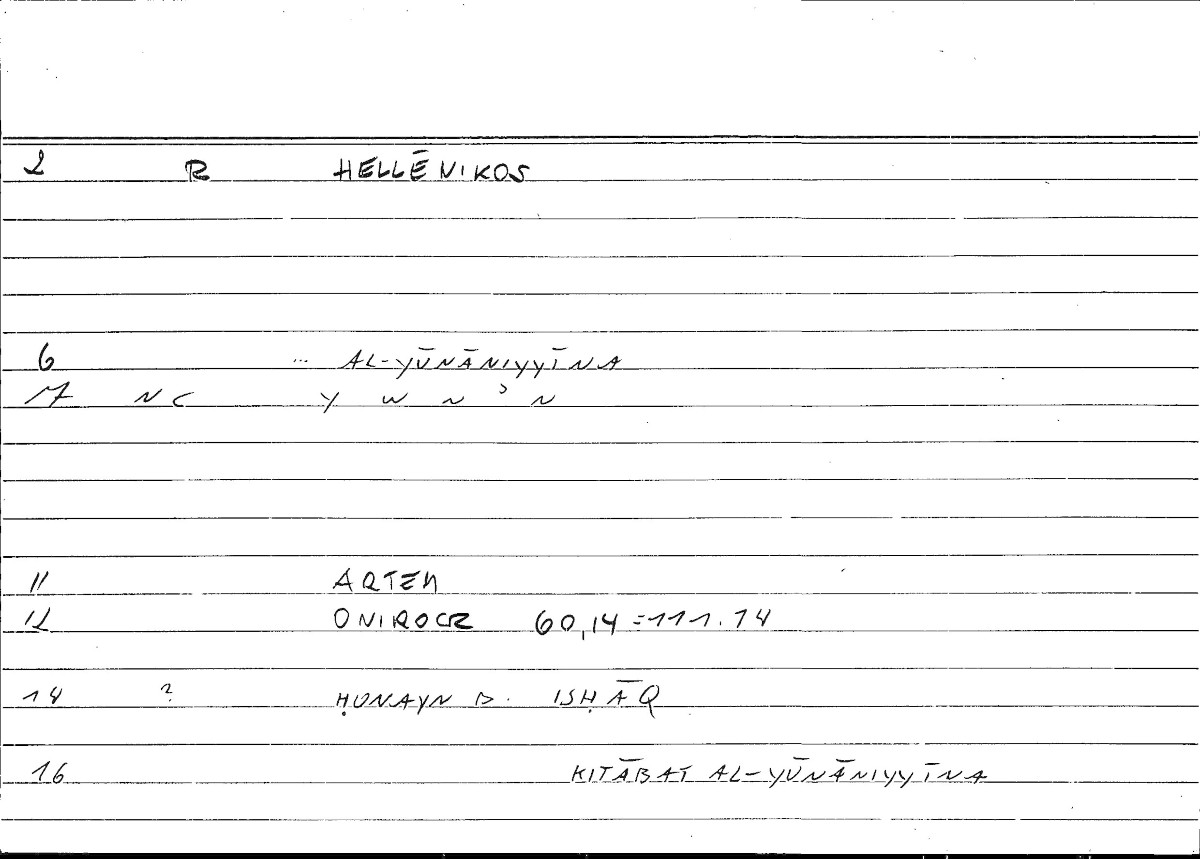 2 R HELLĒNIKOS
6 ... AL-YŪNĀNIYYĪNA
7 NC Y W N ʾ N
11 ARTEM
12 ONIROCR 60,14=111.14
14 ? ḤUNAYN B. ISḤĀQ
16 KITĀBAT AL-YŪNĀNIYYĪNA